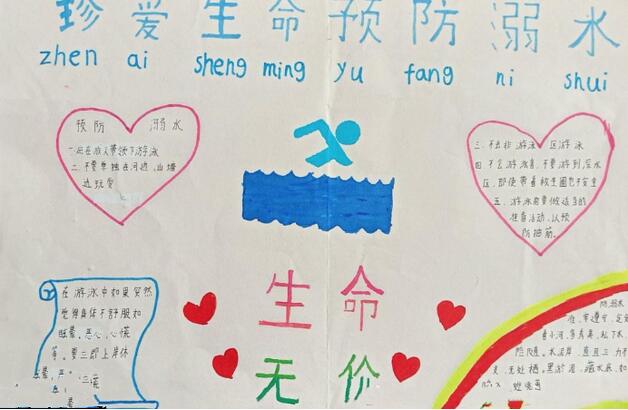 珍爱生命预防溺水
zhen ai sheng ming yu fang ni shui
预防 溺水
一.应在成人带领下游泳
二.不要单独在河边、山塘
边玩耍
三.不去非游泳区游泳
四.不会游泳者,不要游到深水
区,即使带着救生圈也不安全
五.游泳前要做适当的
准备活动,以预
防抽筋。
生命
无价
在游泳中如果突然
觉得身体不舒服如
眩晕、恶心、心慌
等,要立即上岸休
防溺水
险隐。水泥岸